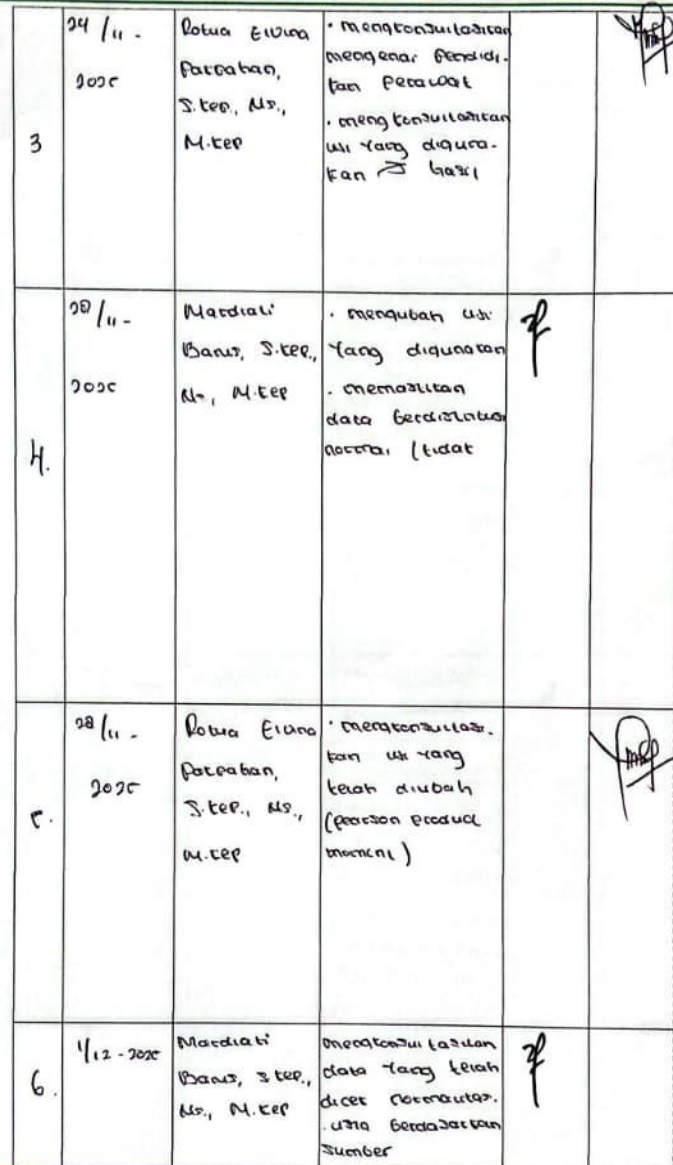 3
24/11-
2025
Rotua Elvina
Pakpahan,
S.kep., Ns.,
M.kep
• mengkonsultasikan
mengenai pendidi-
kan perawat
• mengkonsultasikan
uji yang diguna-
kan hasil
4.
28/11-
2025
Mardiati
Barus, S.kep.,
Ns., M.kep
• mengubah uji
yang digunakan
• memastikan
data berdistribusi
normal (tidak
5.
28/11-
2025
Rotua Elvina
Pakpahan,
S.kep., Ns.,
M.kep
• mengkonsultasi-
kan uji yang
telah diubah
(pearson product
moment)
6.
1/12-2025
Mardiati
Barus, S.kep.,
Ns., M.kep
mengkonsultasikan
data yang telah
dicek normalitas.
. usia berdasarkan
sumber